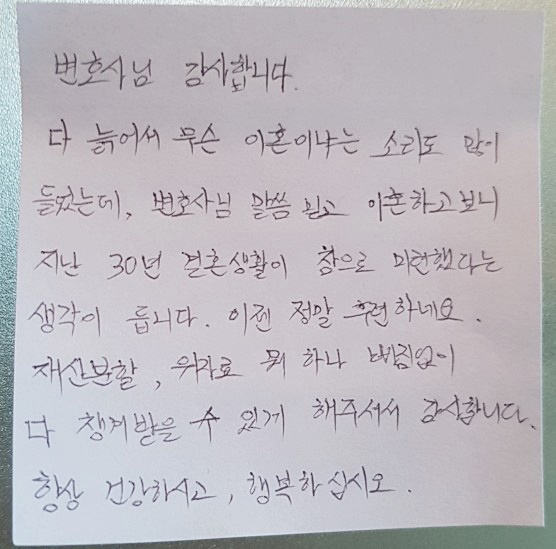 변호사님 감사합니다.
다 늙어서 무슨 이혼이냐는 소리도 많이
들었는데, 변호사님 말씀 믿고 이혼하고보니
지난 30년 결혼생활이 참으로 미련했다는
생각이 듭니다. 이젠 정말 후련하네요.
재산분할, 위자료 뭐 하나 빠짐없이
다 챙겨받을 수 있게 해주셔서 감사합니다.
항상 건강하시고, 행복하십시오.